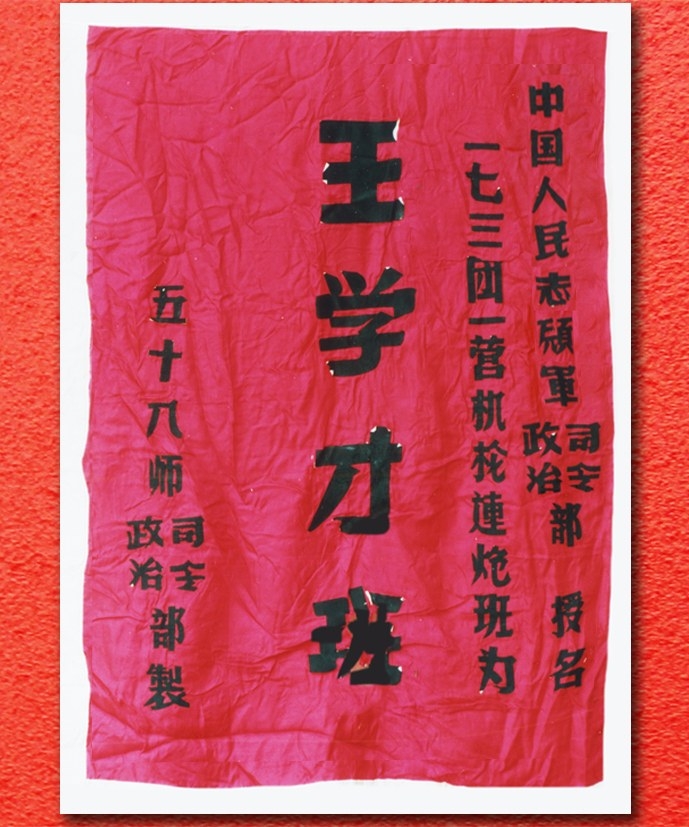 中国人民志願軍司令政治部 授名
一七三团一营机枪連炮班为
王学才班
五十八师司令政治部製